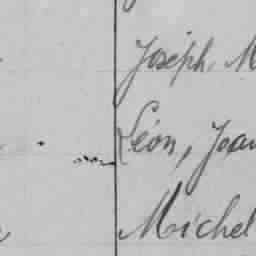 Joseph, M
Léon, Jean
Michel